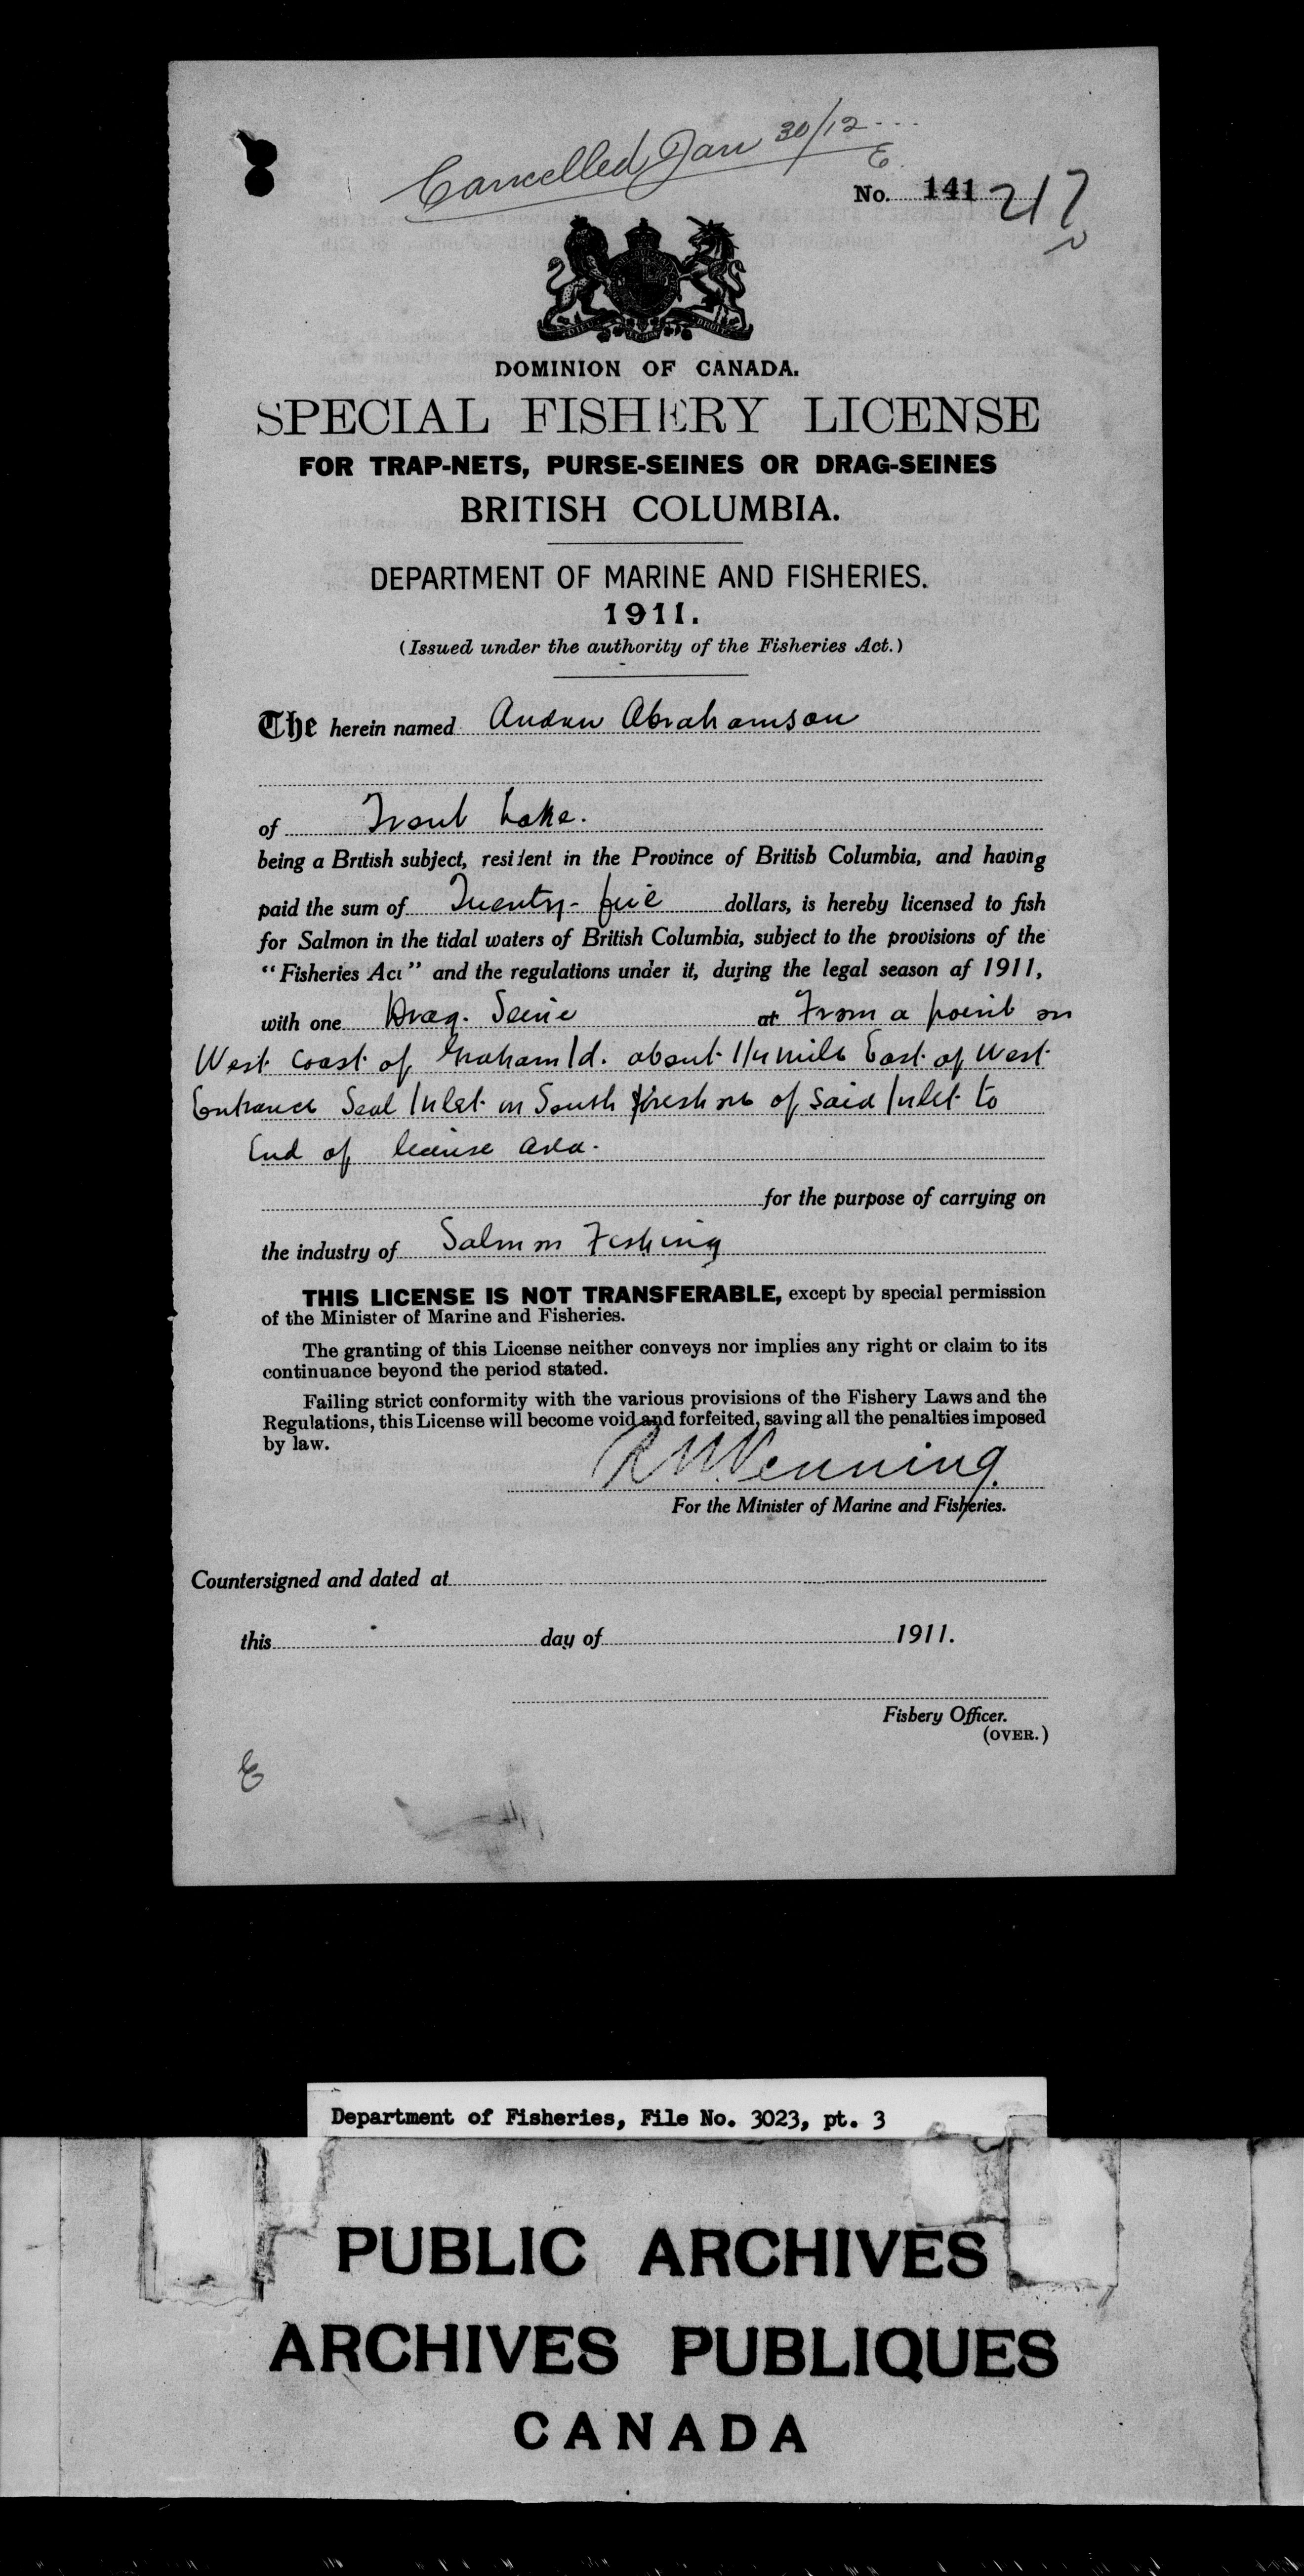 Cancelled Jan 30/12
E
No. 141 217
DOMINION OF CANADA.
SPECIAL FISHERY LICENSE
FOR TRAP-NETS, PURSE-SEINES OR DRAG-SEINES
BRITISH COLUMBIA.
DEPARTMENT OF MARINE AND FISHERIES.
1911.
(Issued under the authority of the Fisheries Act.)
The herein named Andrew Abrahamson
of Trout Lake.
being a British subject, resident in the Province of British Columbia, and having
paid the sum of Twenty-five dollars, is hereby licensed to fish
for Salmon in the tidal waters of British Columbia, subject to the provisions of the
"Fisheries Act" and the regulations under it, during the legal season af 1911,
with one Drag. Seine at From a point on
West Coast of Graham Id. about 1/4 mile East of West
Entrance Seal Inlet on South foreshore of Said Inlet to
End of license area.
for the purpose of carrying on
the industry of Salmon Fishing
THIS LICENSE IS NOT TRANSFERABLE, except by special permission
of the Minister of Marine and Fisheries.
The granting of this License neither conveys nor implies any right or claim to its
continuance beyond the period stated.
Failing strict conformity with the various provisions of the Fishery Laws and the
Regulations, this License will become void and forfeited, saving all the penalties imposed
by law.
R N Venning.
For the Minister of Marine and Fisheries.
Countersigned and dated at
this day of 1911.
Fishery Officer.
(OVER.)
E
Department of Fisheries, File No. 3023, pt. 3
PUBLIC ARCHIVES
ARCHIVES PUBLIQUES
CANADA